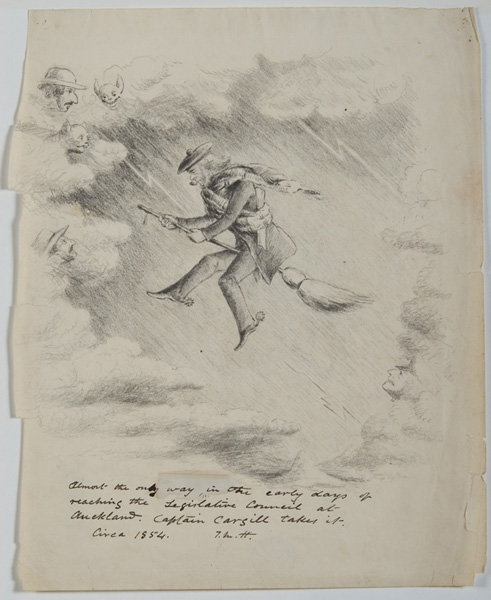 Almost the only way in the early days of
reaching the Legislative Council at
Auckland. Captain Cargill takes it.
Circa 1854. T.M.H.